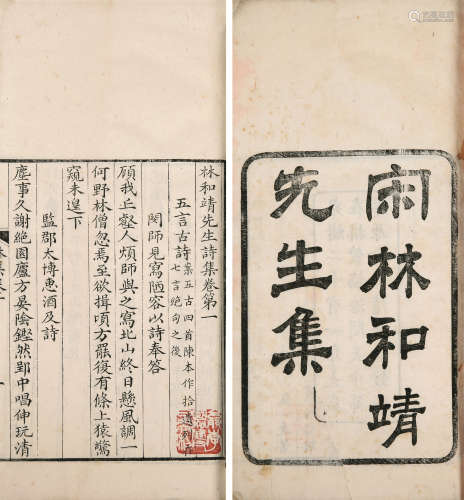 宋林和靖
先生集
林和靖先生詩集卷第一
五言古詩案五古四首陳本作拾遺列
七言絶句之後
閔師見寫陋容以詩奉答
顧我丘壑人煩師與之寫北山終日懸風調一
何野林僧忽焉至欲揖頃方罷復有條上猿驚
窺未遑下
監郡太博惠酒及詩
塵事久謝絕園廬方晏陰鏗然郢中唱伸玩清